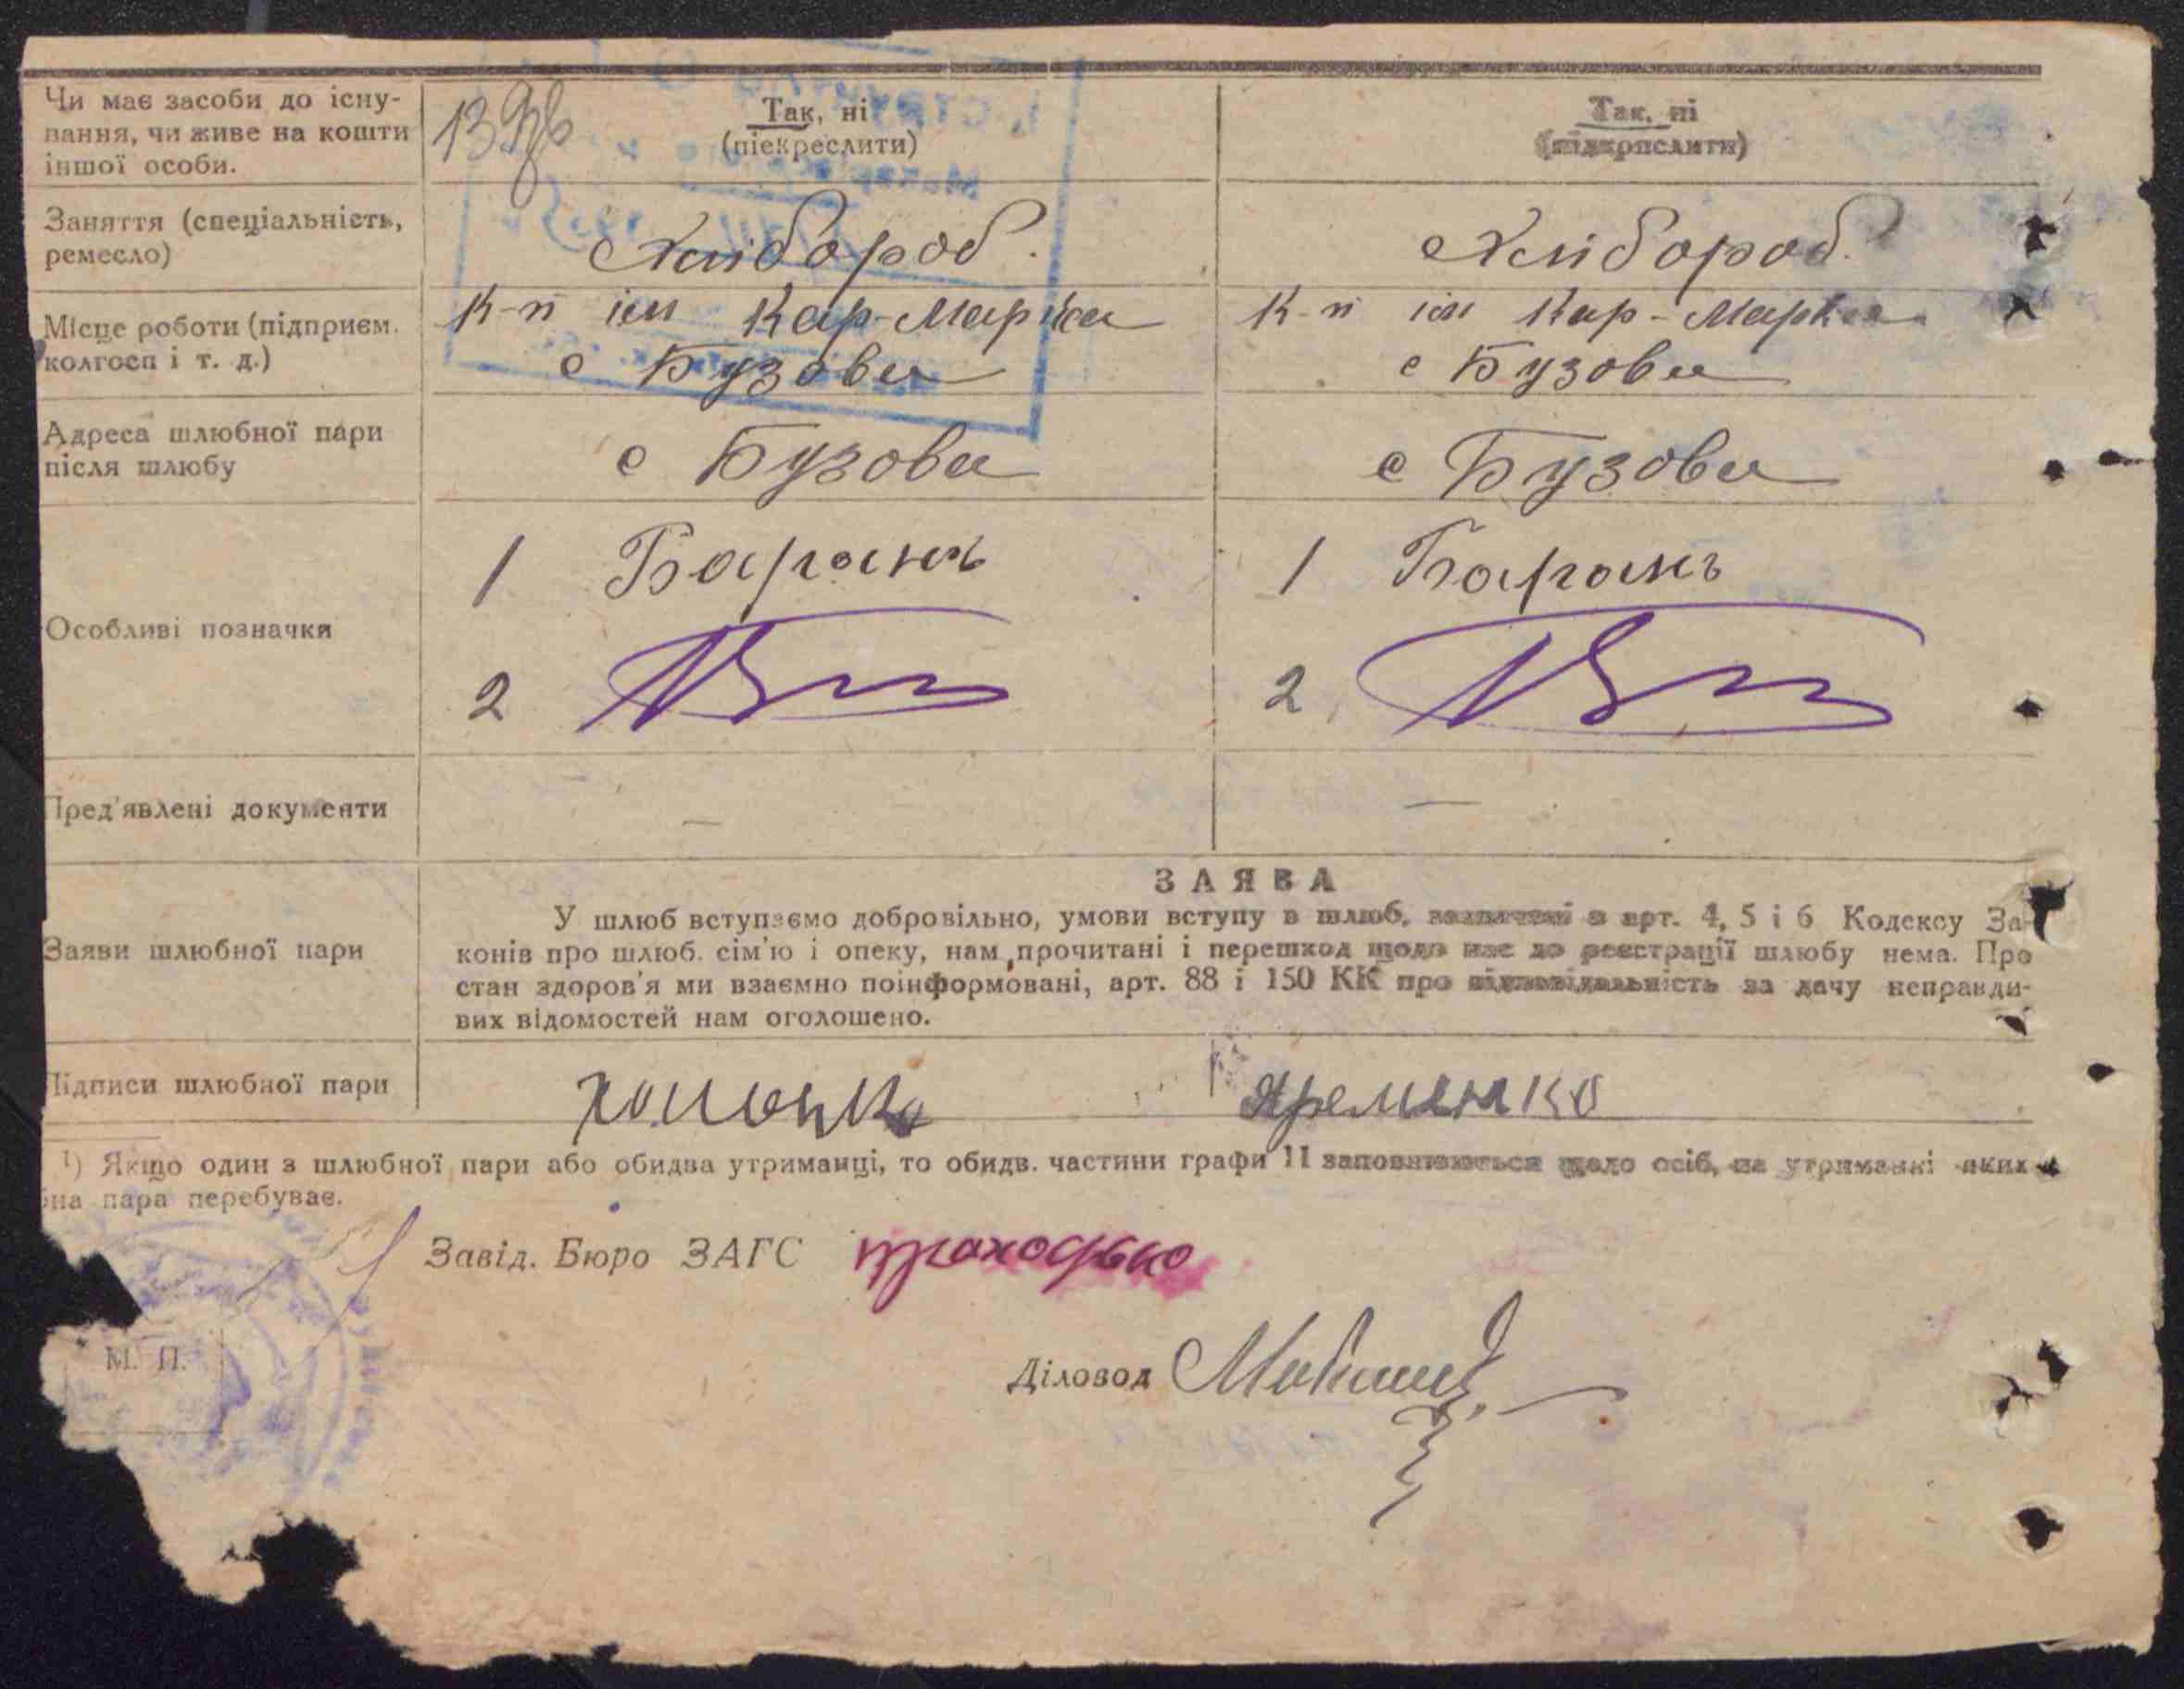 Чи має засоби до існу-
вання, чи живе на кошти
іншої особи.
Так, ні
(піекреслити)
Так, ні
(підкрпслити)
Заняття (спеціальність,
ремесло)
Хлібороб.
Хлібороб.
Місце роботи (підприєм.
колгосп і т. д.)
К-п ім Кар-Маркса
с Бузова
К-п ім Кар-Маркса
с Бузова
Адреса шлюбної пари
після шлюбу
с Бузова
с Бузова
Особливі позначки
1 Баранъ
2
1 Баранъ
2
Пред'явлені документи
—
—
ЗАЯВА
Заяви шлюбної пари
У шлюб вступаємо добровільно, умови вступу в шлюб, зазначені в арт. 4, 5 і 6 Кодексу За-
конів про шлюб. сім'ю і опеку, нам прочитані і перешкод щодо нас до реєстрації шлюбу нема. Про
стан здоров'я ми взаємно поінформовані, арт. 88 і 150 КК про відповідальність за дачу неправди-
вих відомостей нам оголошено.
Підписи шлюбної пари
Яременко
1) Якщо один з шлюбної пари або обидва утриманці, то обидв. частини графи 11 заповнюються щодо осіб, на утриманні яких
на пара перебуває.
Завід. Бюро ЗАГС
М. П.
Діловод